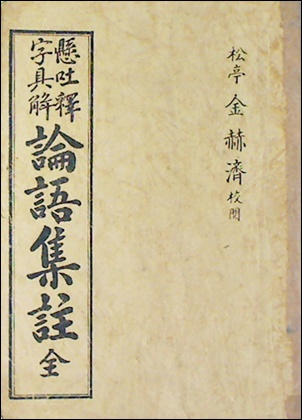 松亭 金赫濟 校閱
懸吐釋
字具解
論語集註 全